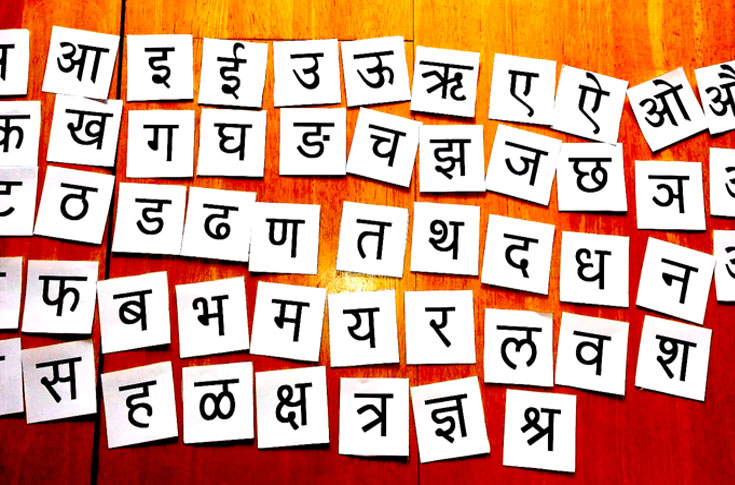 अ आ इ ई उ ऊ ऋ ए ऐ ओ औ
क ख ग घ ङ च झ ज छ ञ
ट ठ ड ढ ण त थ द ध न
फ ब भ म य र ल व श
स ह ळ क्ष त्र ज्ञ श्र